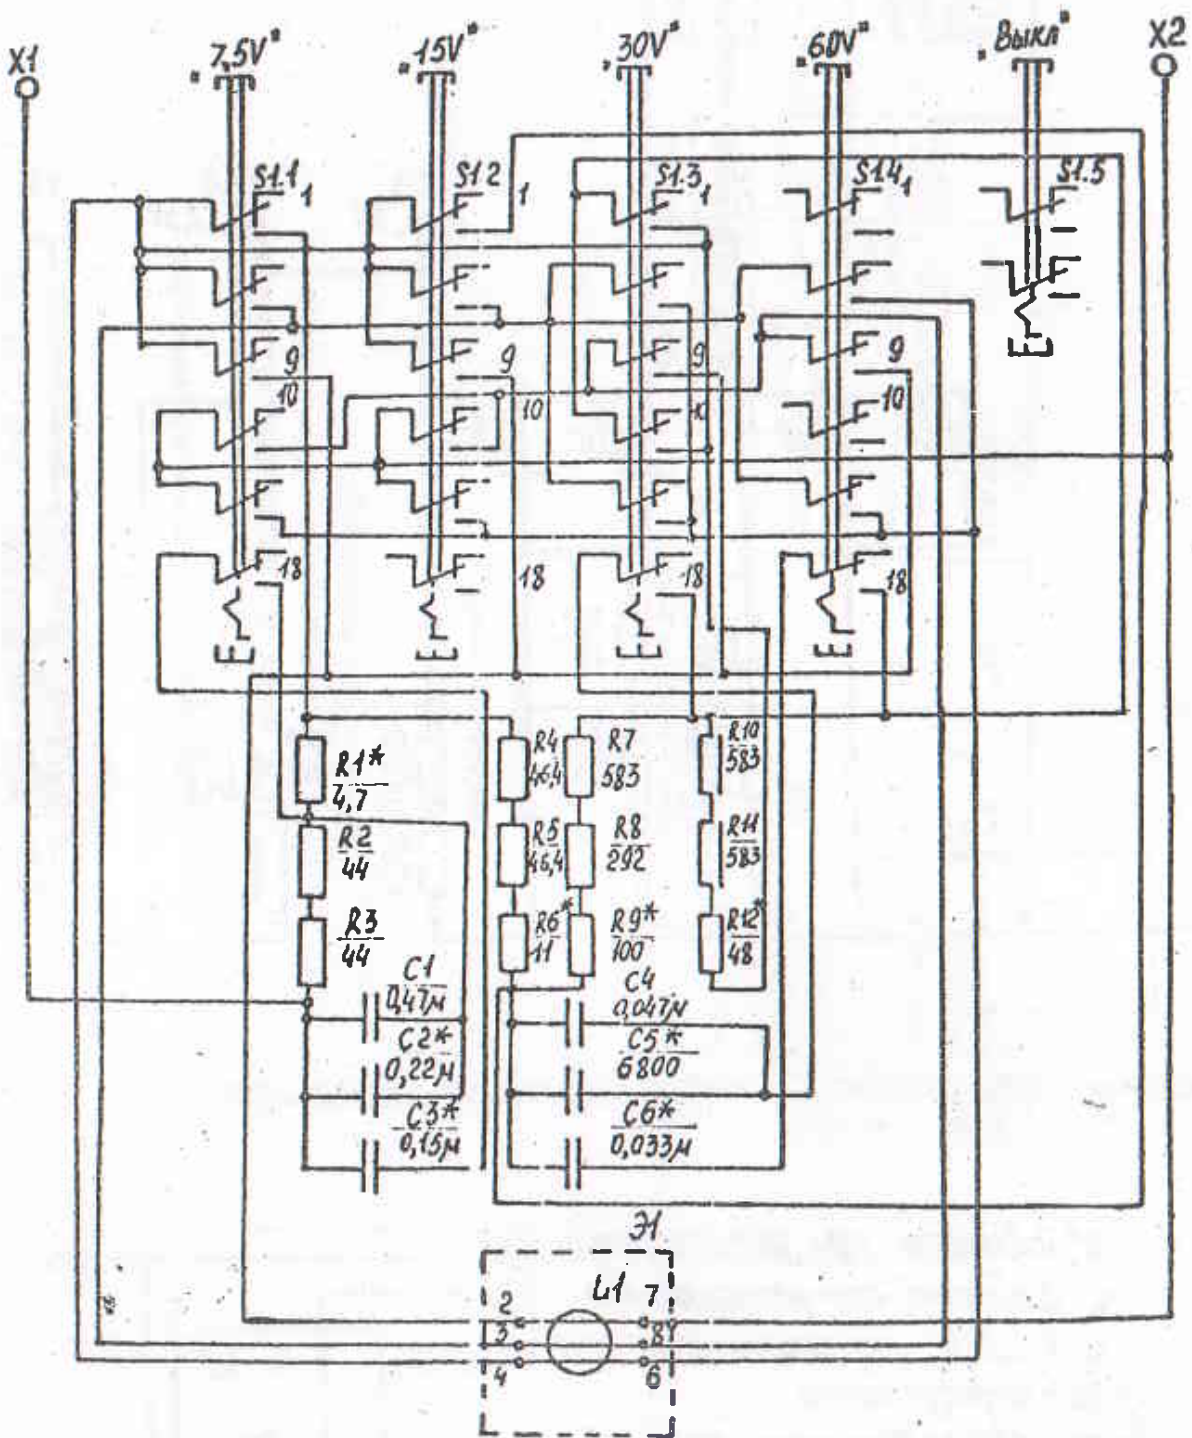 X1
"7,5V"
"15V"
"30V"
"60V"
"Выкл"
X2
S1.1
1
S1 2
1
S1.3
1
S1.4
1
S1.5
9
9
9
9
10
10
10
10
18
18
18
18
R1*
4,7
R2
44
R3
44
R4
46,4
R5
46,4
R6*
11
R7
583
R8
292
R9*
100
R10
583
R11
583
R12*
48
C1
0,47м
C2*
0,22м
C3*
0,15м
C4
0,047м
C5*
6800
C6*
0,033м
Э1
L1
2
3
4
7
8
6